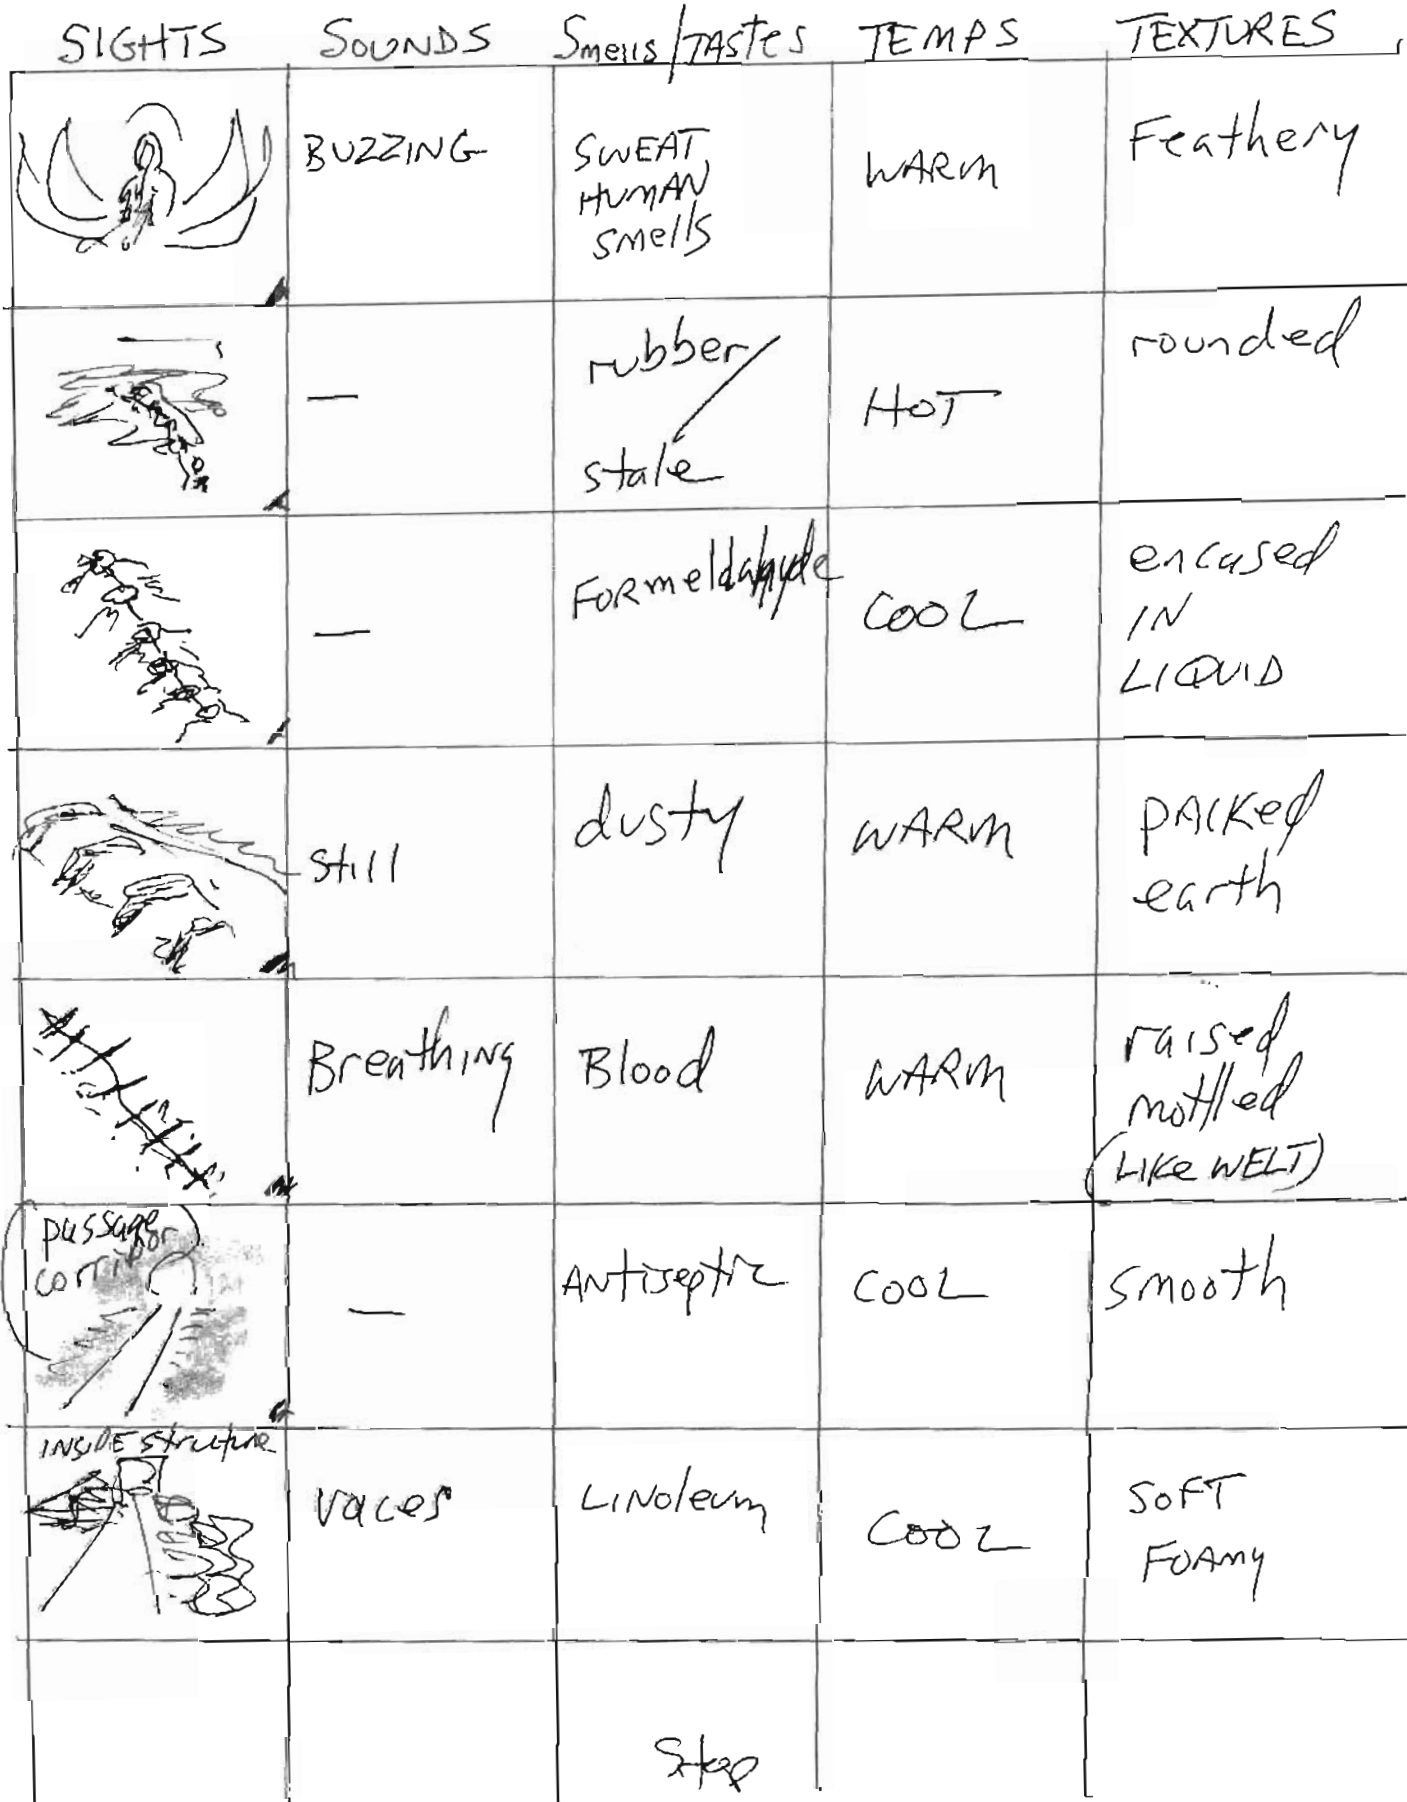 SIGHTS SOUNDS Smells/TASTES TEMPS TEXTURES
BUZZING SWEAT, HUMAN smells WARM Feathery
— rubber stale HOT rounded
— FORmeldahyde COOL encased IN LIQUID
still dusty WARM PACKed earth
BreathING Blood WARM raised mottled (LIKe WELT)
passage corridor — ANTiseptic COOL smooth
INSIDE structure voices LINoleum COOL SOFT FOAMy
Stop